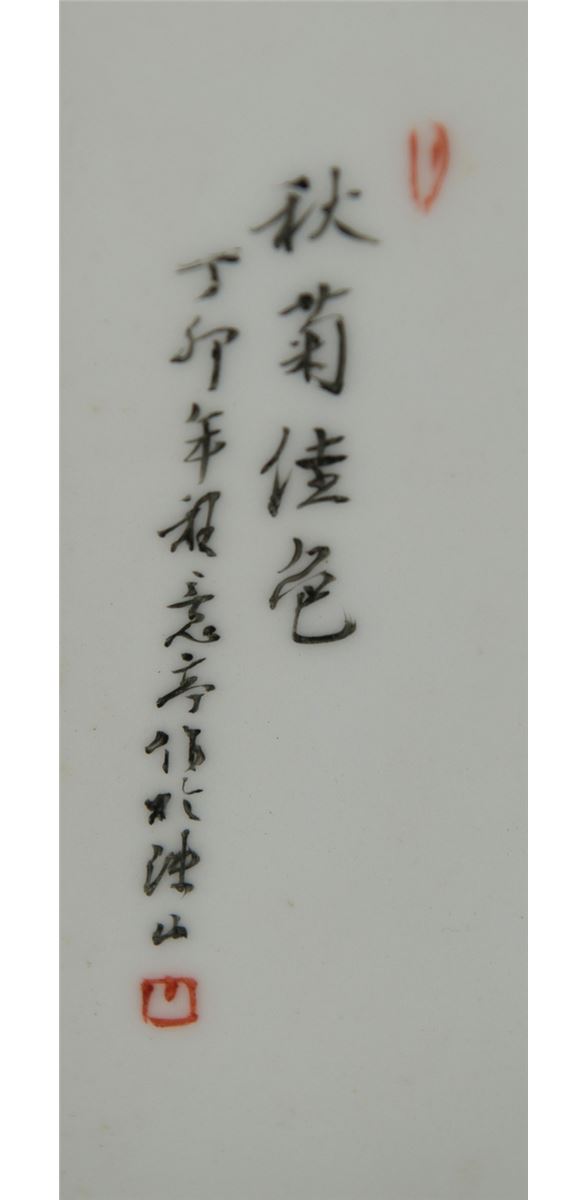 秋菊佳色
丁卯年程意亭作於珠山